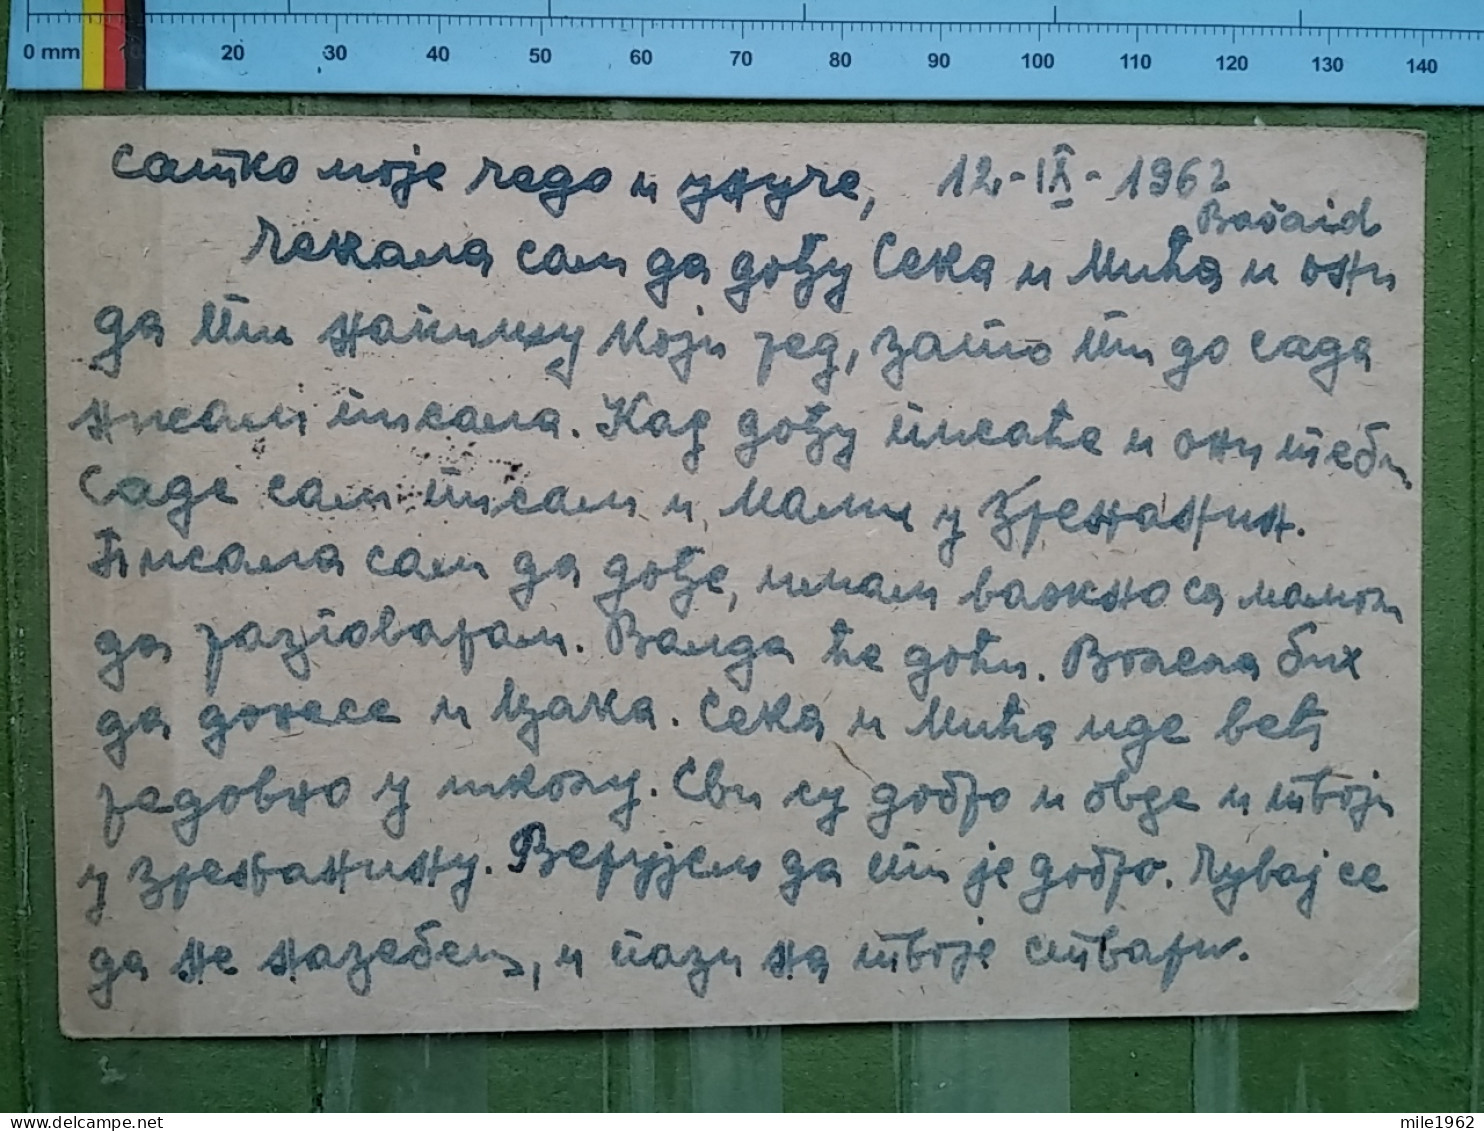 0 mm 10 20 30 40 50 60 70 80 90 100 110 120 130 140
Сатко моје чедо и унуче, 12-IX-1962
Bašaid
Чекала сам да дођу Сека и Мића и они
да ти напишу који ред, зато ти до сада
нисам писала. Кад дођу писаће и они теби
Саде сам писам и мами у Зрењанин.
Писала сам да дође, имам важно са мамом
да разговарам. Ваљда ће доћи. Волела бих
да донесе и Цака. Сека и Мића иде већ
редовно у школу. Сви су добро и овде и твоји
у Зрењанину. Верујем да ти је добро. Чувај се
да не назебеш, и пази на твоје ствари.
mile1962